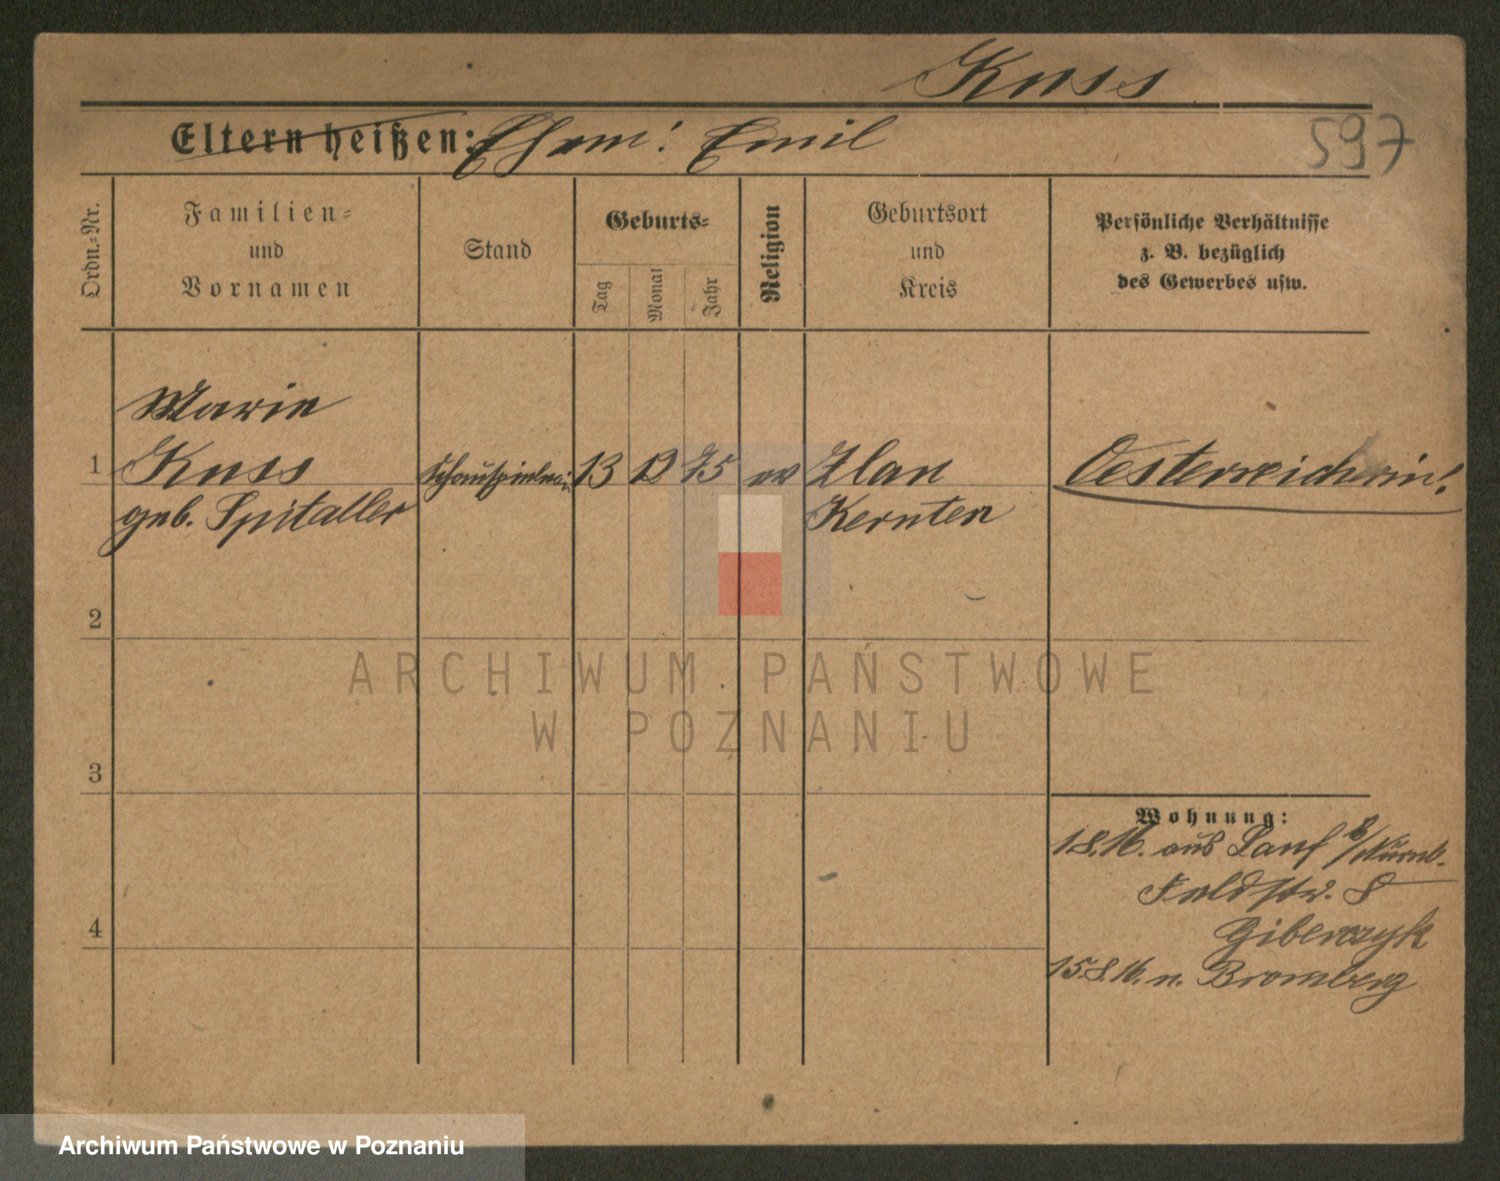 Kuss
Eltern heißen: Ehem: Emil
597
Ordn.-Nr.
Familien-
und
Vornamen
Stand
Geburts-
Tag
Monat
Jahr
Religion
Geburtsort
und
Kreis
Persönliche Verhältnisse
z. B. bezüglich
des Gewerbes usw.
Marie
1 Kuss Schauspielerin 13 12 75 ev Ulan Oesterreicherin!
geb. Spitaller Kernten
2
ARCHIWUM PAŃSTWOWE
W POZNANIU
3
Wohnung:
1.8.16. aus Lauf b/Nürnb.
Feldstr. 8
4
Giberczyk
15.8.16. n. Bromberg
Archiwum Państwowe w Poznaniu